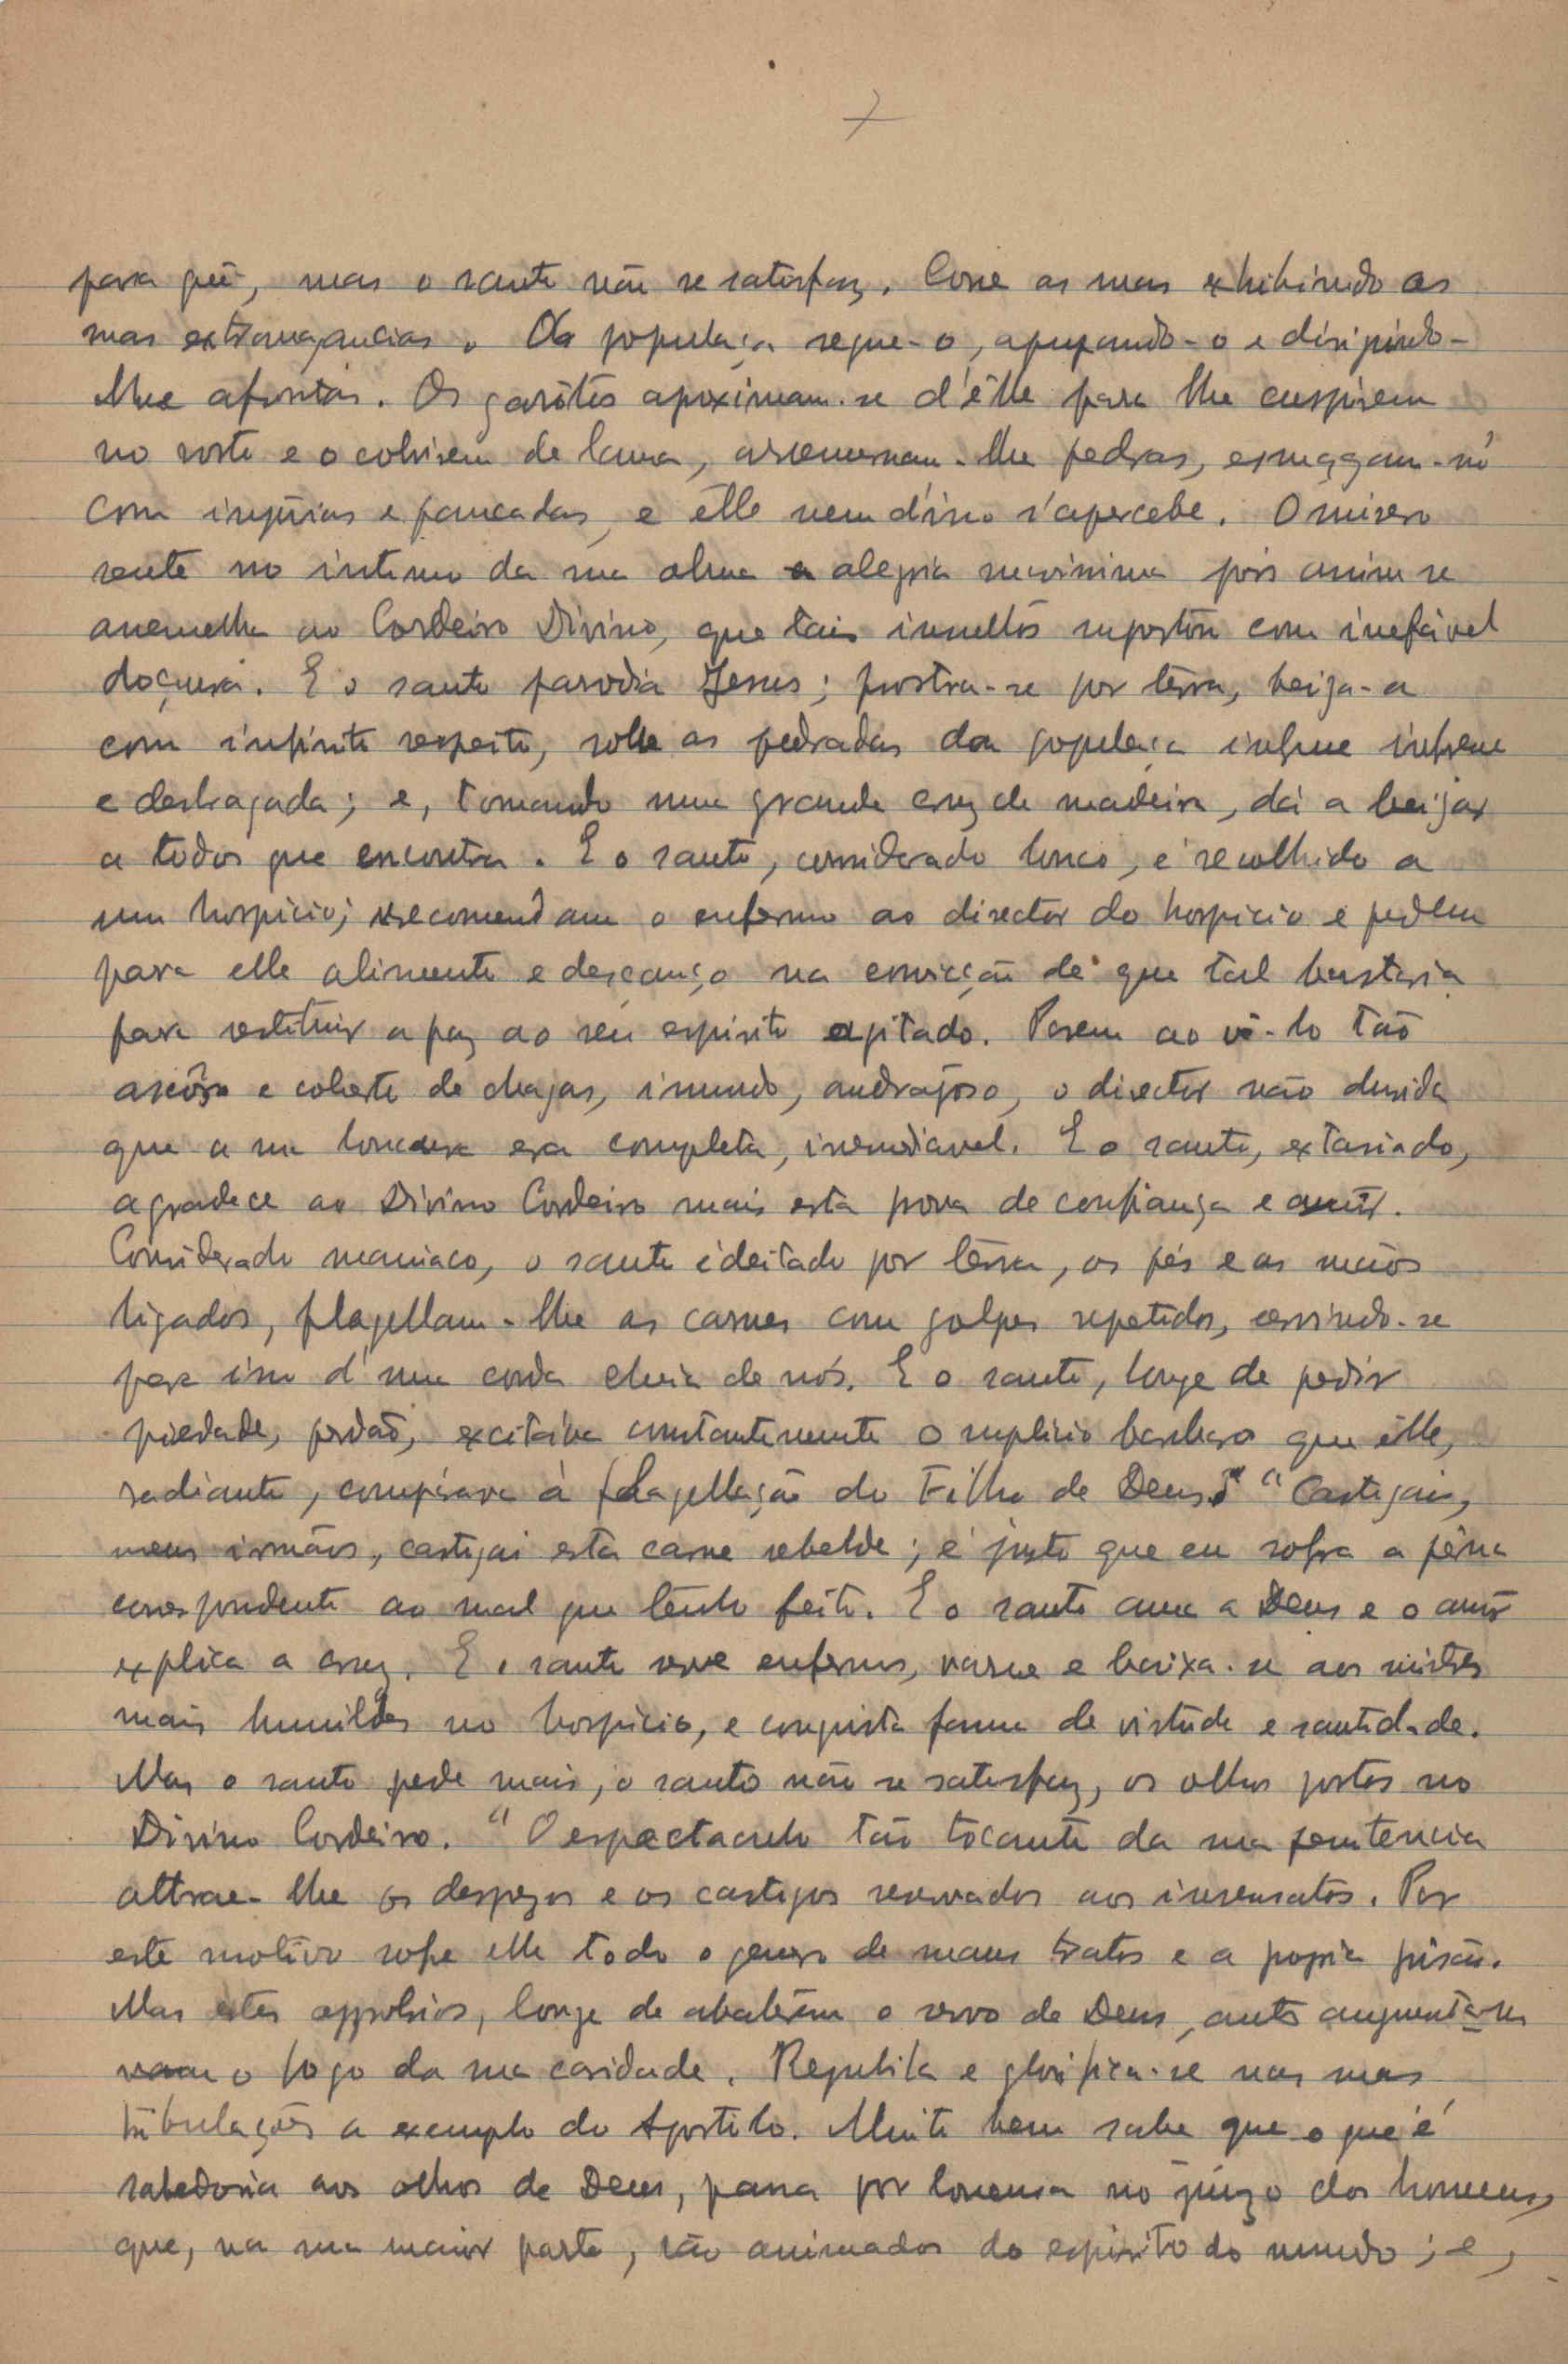 7
para quê, mas o santo não se satisfaz. Corre as ruas exhibindo as
suas extravagancias. A populaça segue-o, apupando-o e dirigindo-
lhe afrontas. Os garôtos aproximam-se d'êlle para lhe cuspirem
no rosto e o cobrirem de lama, arremessam-lhe pedras, esmagam-nó
com injúrias e pancadas, e êlle nem d'isso s'apercebe. O misero
sente no intimo da sua alma a alegria novissima pois assim se
assemelha ao Cordeiro Divino, que tais insultos suportou com inefável
doçura. E o santo parodia Jesus; prostra-se por terra, beija-a
com infinito respeito, sob as pedradas da populaça infrene
e desbragada; e, tomando uma grande cruz de madeira, dá a beijar
a todos que encontra. E o santo, considerado louco, é recolhido a
um hospicio; recomendam o enfermo ao director do hospicio e pedem
para elle alimento e descanço na convicção de que tal bastaria
para restituir a paz ao seu espirito agitado. Porem ao vê-lo tão
ascôso e coberto de chagas, imundo, andrajoso, o director não duvida
que a sua loucura era completa, irremediavel. E o santo, extasiado,
agradece ao Divino Cordeiro mais esta prova de confiança e amôr.
Considerado maniaco, o santo é deitado por terra, os pés e as mãos
ligados, flagellam-lhe as carnes com golpes repetidos, servindo-se
para isso d'uma corda cheia de nós. E o santo, longe de pedir
piedade, perdão, excitava constantemente o suplicio barbaro que êlle,
radiante, comparava á flagellação do Filho de Deus: "Castigai,
meus irmãos, castigai esta carne rebelde; é justo que eu sofra a pena
correspondente ao mal que tenho feito. E o santo ama a Deus e o amôr
explica a cruz. E o santo serve enfermos, varre e baixa-se aos misteres
mais humildes no hospicio, e conquista fama de virtude e santidade.
Mas o santo pede mais, o santo não se satisfaz, os olhos postos no
Divino Cordeiro. "O espectaculo tão tocante da sua penitencia
attrae-lhe os desprezos e os castigos reservados aos insensatos. Por
este motivo sofre elle todo o genero de maus tratos e a propria prisão.
Mas estes opprobrios, longe de abaterem o servo de Deus, antes augmenta-
vam o fogo da sua caridade. Regubila e glorifica-se nas suas
tribulações a exemplo do Apostolo. Muito bem sabe que o que é
sabedoria aos olhos de Deus, passa por loucura no juizo dos homens,
que, na sua maior parte, são animados do espirito do mundo; e,